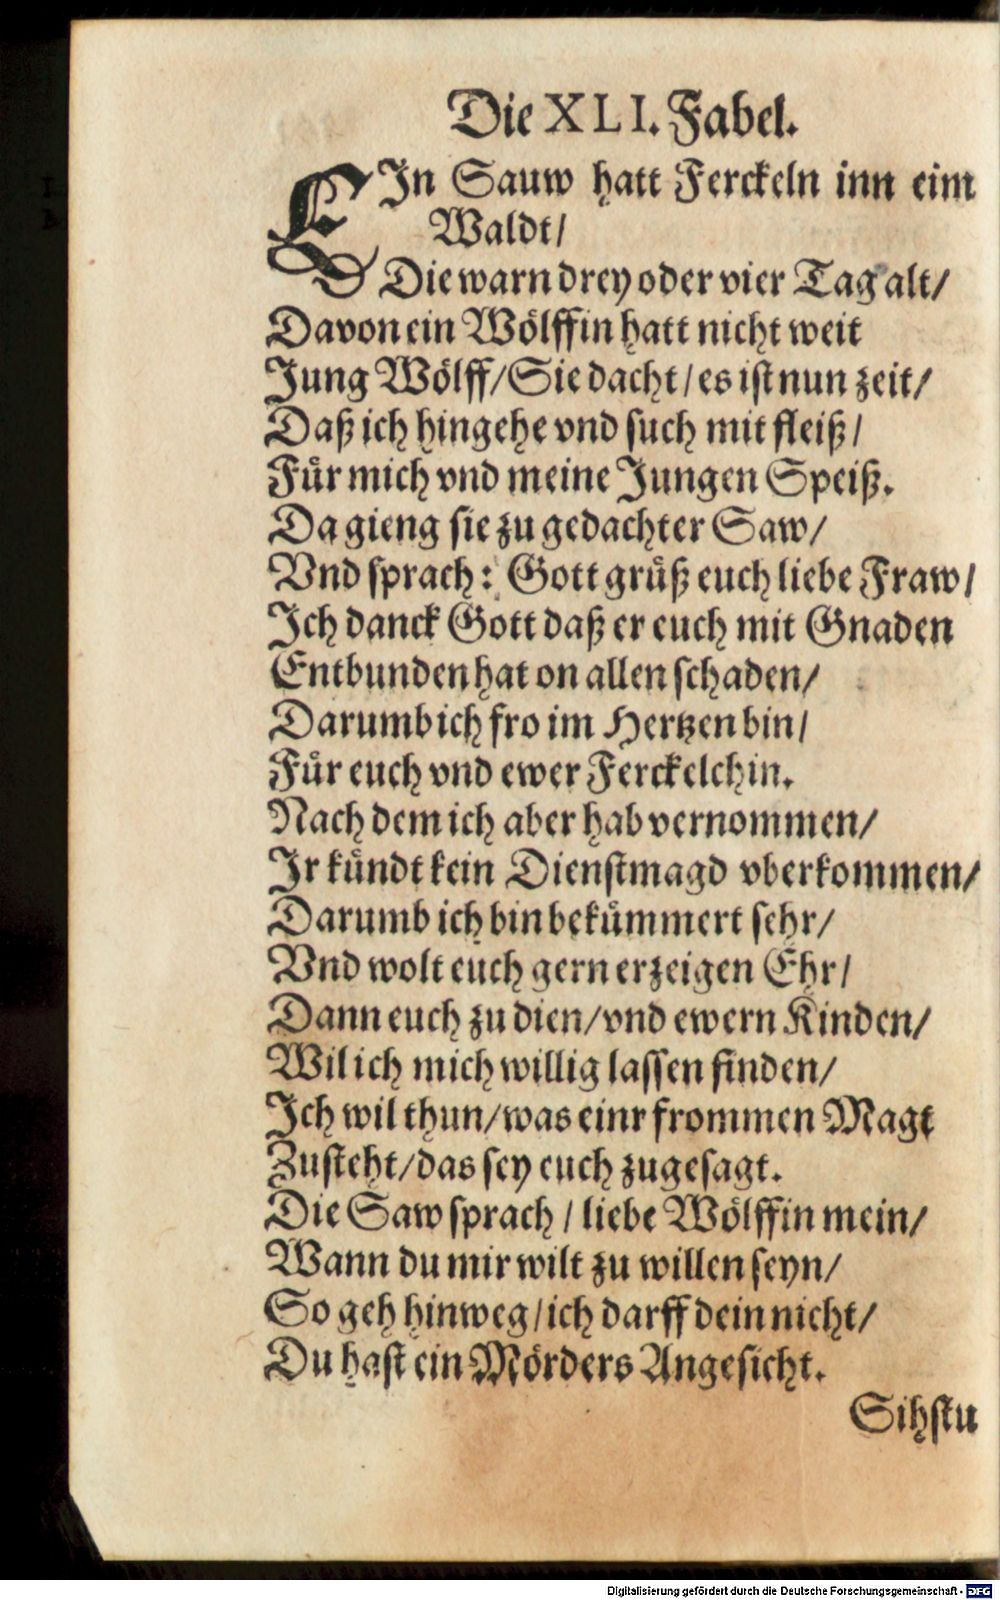 Die XLI. Fabel.
EIn Sauw hatt Ferckeln inn eim
Waldt/
Die warn drey oder vier Tag alt/
Davon ein Wölffin hatt nicht weit
Jung Wölff/Sie dacht/es ist nun zeit/
Daß ich hingehe vnd such mit fleiß/
Für mich vnd meine Jungen Speiß.
Da gieng sie zu gedachter Saw/
Vnd sprach: Gott grüß euch liebe Fraw/
Ich danck Gott daß er euch mit Gnaden
Entbunden hat on allen schaden/
Darumb ich fro im Hertzen bin/
Für euch vnd ewer Ferckelchin.
Nach dem ich aber hab vernommen/
Ir kündt kein Dienstmagd vberkommen/
Darumb ich bin bekümmert sehr/
Vnd wolt euch gern erzeigen Ehr/
Dann euch zu dien/vnd ewern Kinden/
Wil ich mich willig lassen finden/
Ich wil thun/was einr frommen Magt
Zusteht/das sey euch zugesagt.
Die Saw sprach/liebe Wölffin mein/
Wann du mir wilt zu willen seyn/
So geh hinweg/ich darff dein nicht/
Du hast ein Mörders Angesicht.
Sihstu
Digitalisierung gefördert durch die Deutsche Forschungsgemeinschaft - DFG